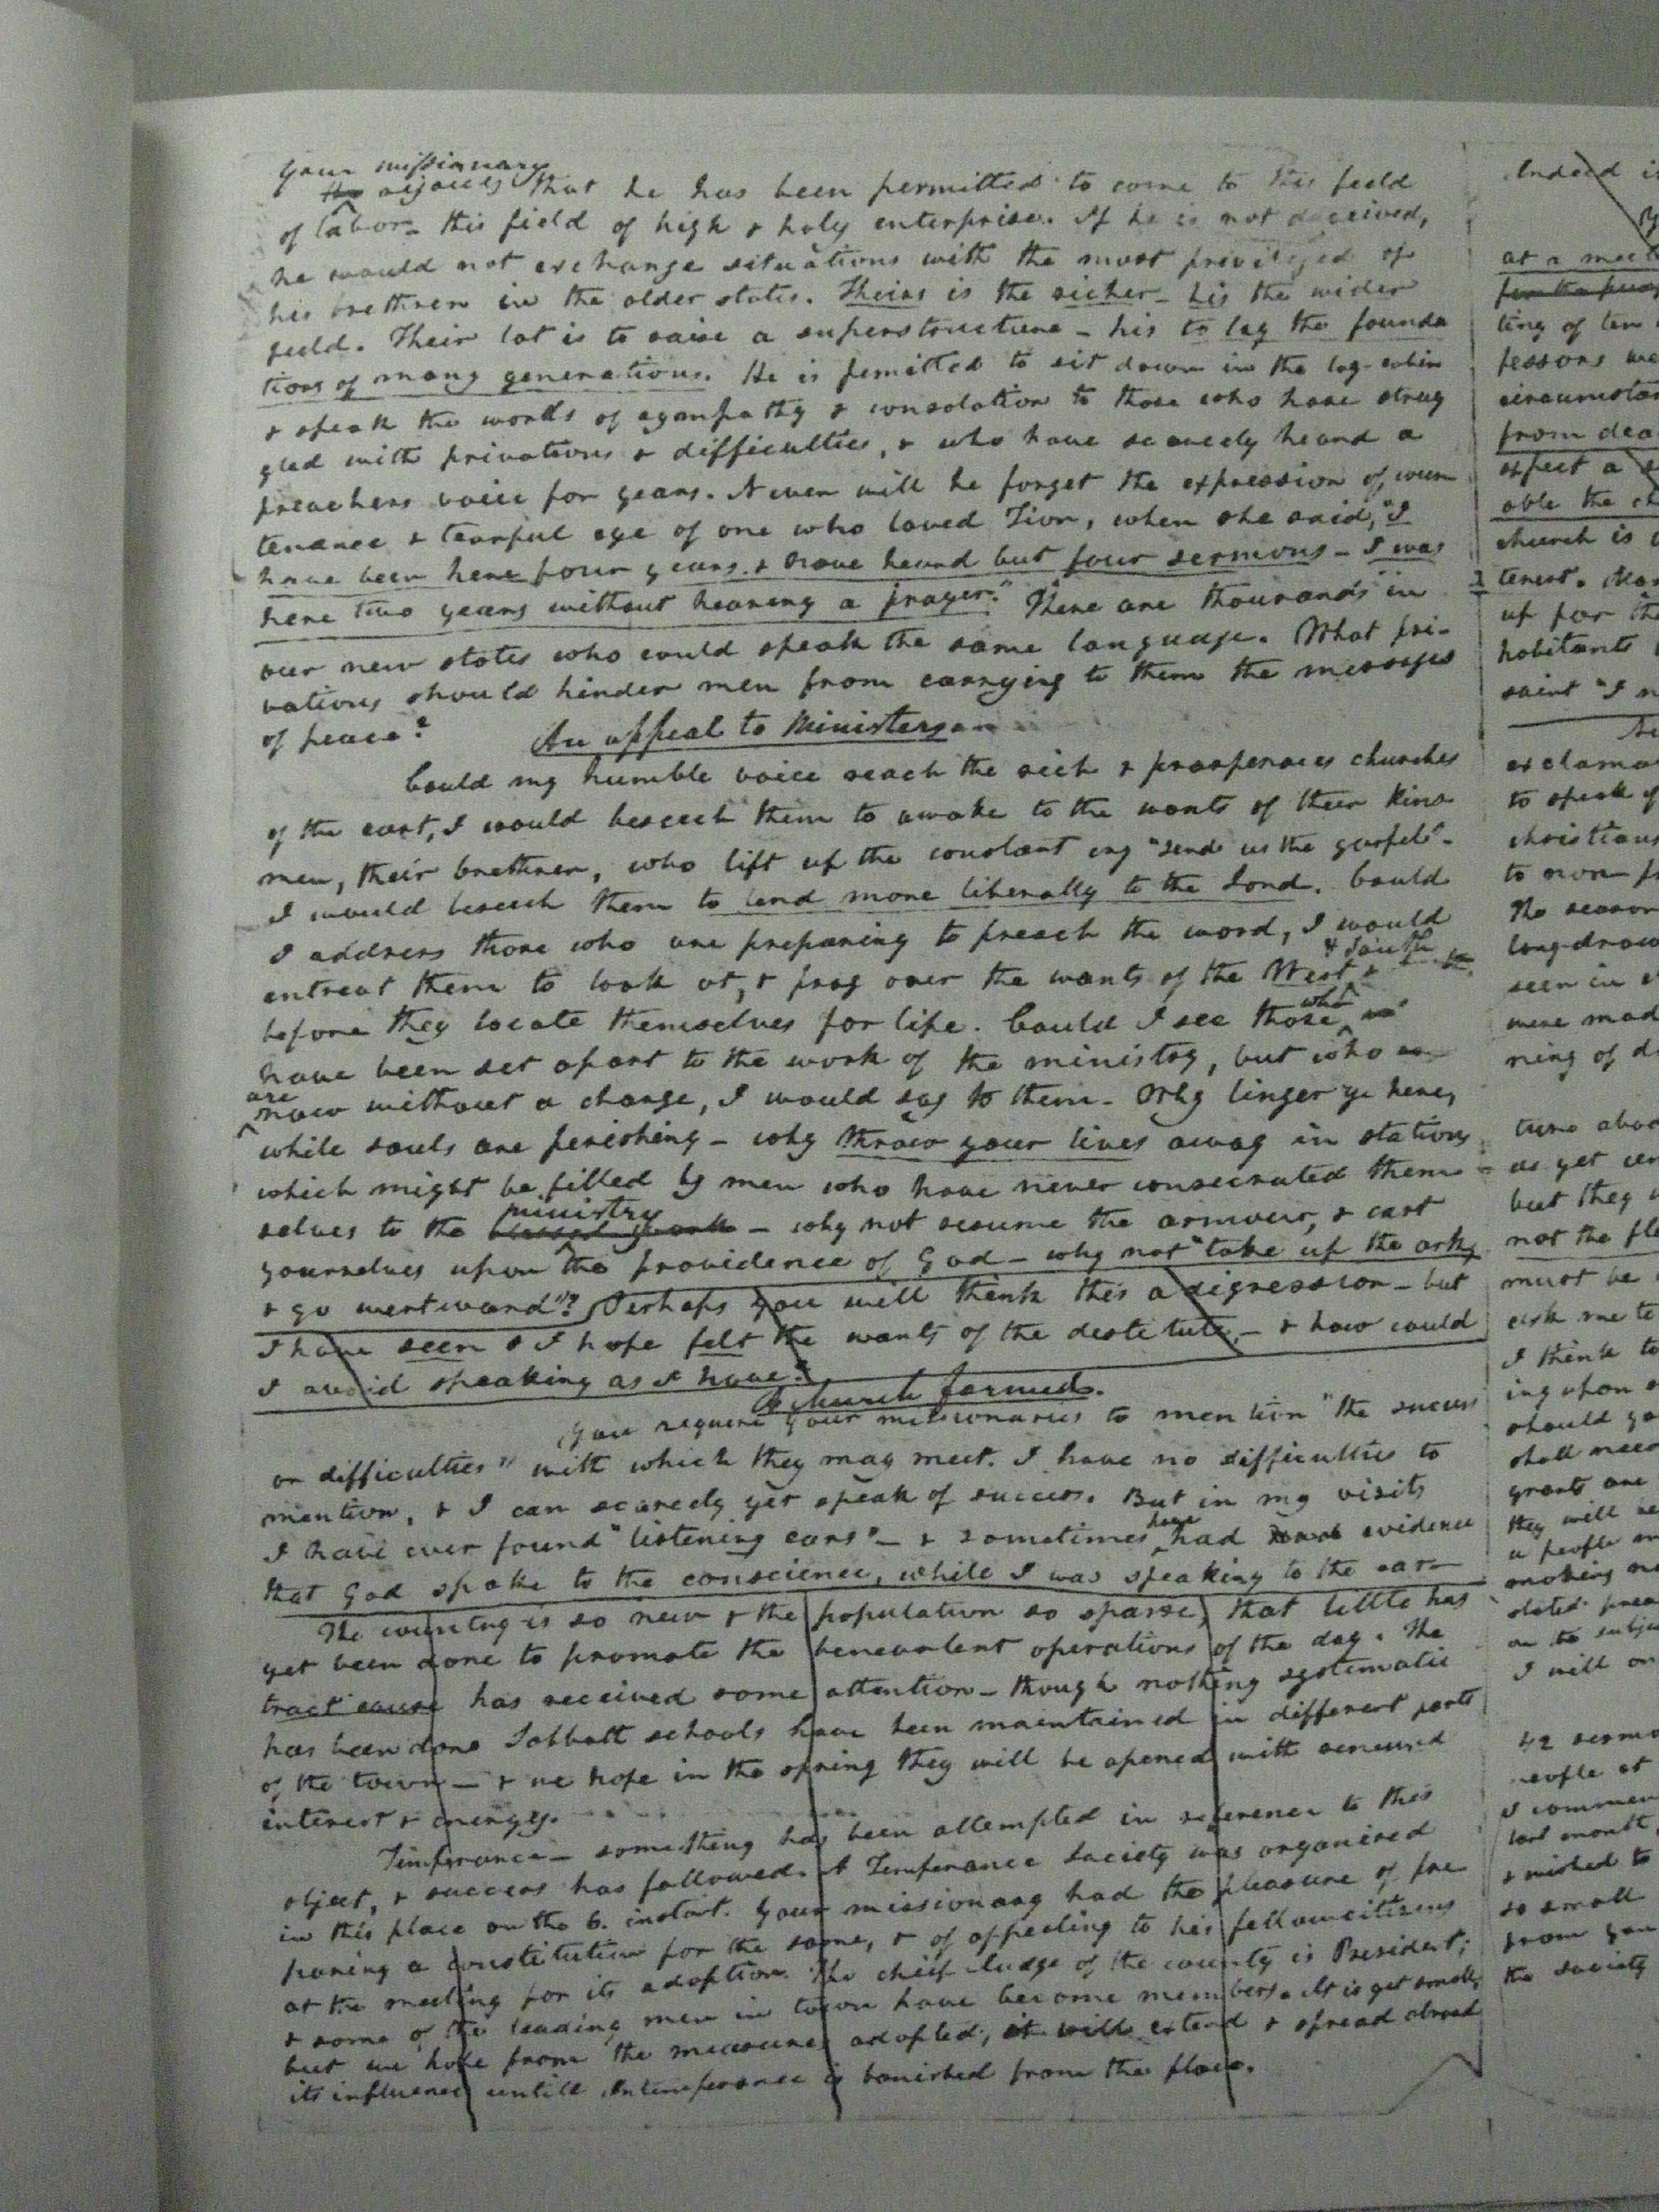 Your missionary
He rejoices that he has been permitted to come to this field
of labor - this field of high & holy enterprise. If he is not deceived,
he would not exchange situations with the most privileged of
his brethren in the older states. Theirs is the richer - his the wider
field. Their lot is to raise a superstructure - his to lay the founda
tions of many generations. He is permitted to sit down in the log-cabin
& speak the words of sympathy & consolation to those who have strug
gled with privations & difficulties, & who have scarcely heard a
preachers voice for years. Never will he forget the expression of coun
tenance & tearful eye of one who loved Zion, when she said, "I
have been here four years & have heard but four sermons - I was
here two years without hearing a prayer." There are thousands in
our new states who could speak the same language. What pri-
vations should hinder men from carrying to them the messages
of peace?
An appeal to Ministers
Could my humble voice reach the rich & prosperous churches
of the east, I would beseech them to awake to the wants of their kins
men, their brethren, who lift up the constant cry "send us the gospel" -
I would beseech them to lend more liberally to the Lord. Could
I address those who are preparing to preach the word, I would
entreat them to look at, & pray over the wants of the West & South
before they locate themselves for life. Could I see those who
have been set apart to the work of the ministry, but who
are now without a charge, I would say to them - Why linger ye here,
while souls are perishing - why throw your lives away in stations
which might be filled by men who have never consecrated them
selves to the blessed work ministry - why not resume the armour, & cast
yourselves upon the providence of God - why not "take up the ark,
& go westward"? Perhaps you will think this a digression - but
I have seen & I hope felt the wants of the destitute, - & how could
I avoid speaking as I have?
A church formed.
You require your missionaries to mention "the success
or difficulties" with which they may meet. I have no difficulties to
mention, & I can scarcely yet speak of success. But in my visits
I have ever found "listening ears" - & sometimes have had evidence
that God spoke to the conscience, while I was speaking to the ear -
The country is so new & the population so sparse, that little has
yet been done to promote the benevolent operations of the day. The
tract cause has received some attention - though nothing systematic
has been done Sabbath schools have been maintained in different parts
of the town - & we hope in the spring they will be opened with renewed
interest & energy.
Temperance - something has been attempted in reference to this
object, & success has followed. A Temperance Society was organized
in this place on the 6. instant. Your missionary had the pleasure of pre
paring a constitution for the same, & of appealing to his fellow citizens
at the meeting for its adoption. The chief Judge of the county is President;
& some of the leading men in town have become members. It is yet small,
but we hope from the measures adopted, it will extend & spread abroad
its influence untill Intemperance is banished from the place.
Indeed
at a
ting of
fessors
from
expect a
able the
church is
terest.
up for the
habitants
saint "I
to speak
christians
to
The
long-draw
seen in
were
ning of
but they
not the
must be
ask me to
I think to
ing upon
should
shall
grants are
they will
a people
I will
42
I commen
last month,
& wished to
so small
from you
the society